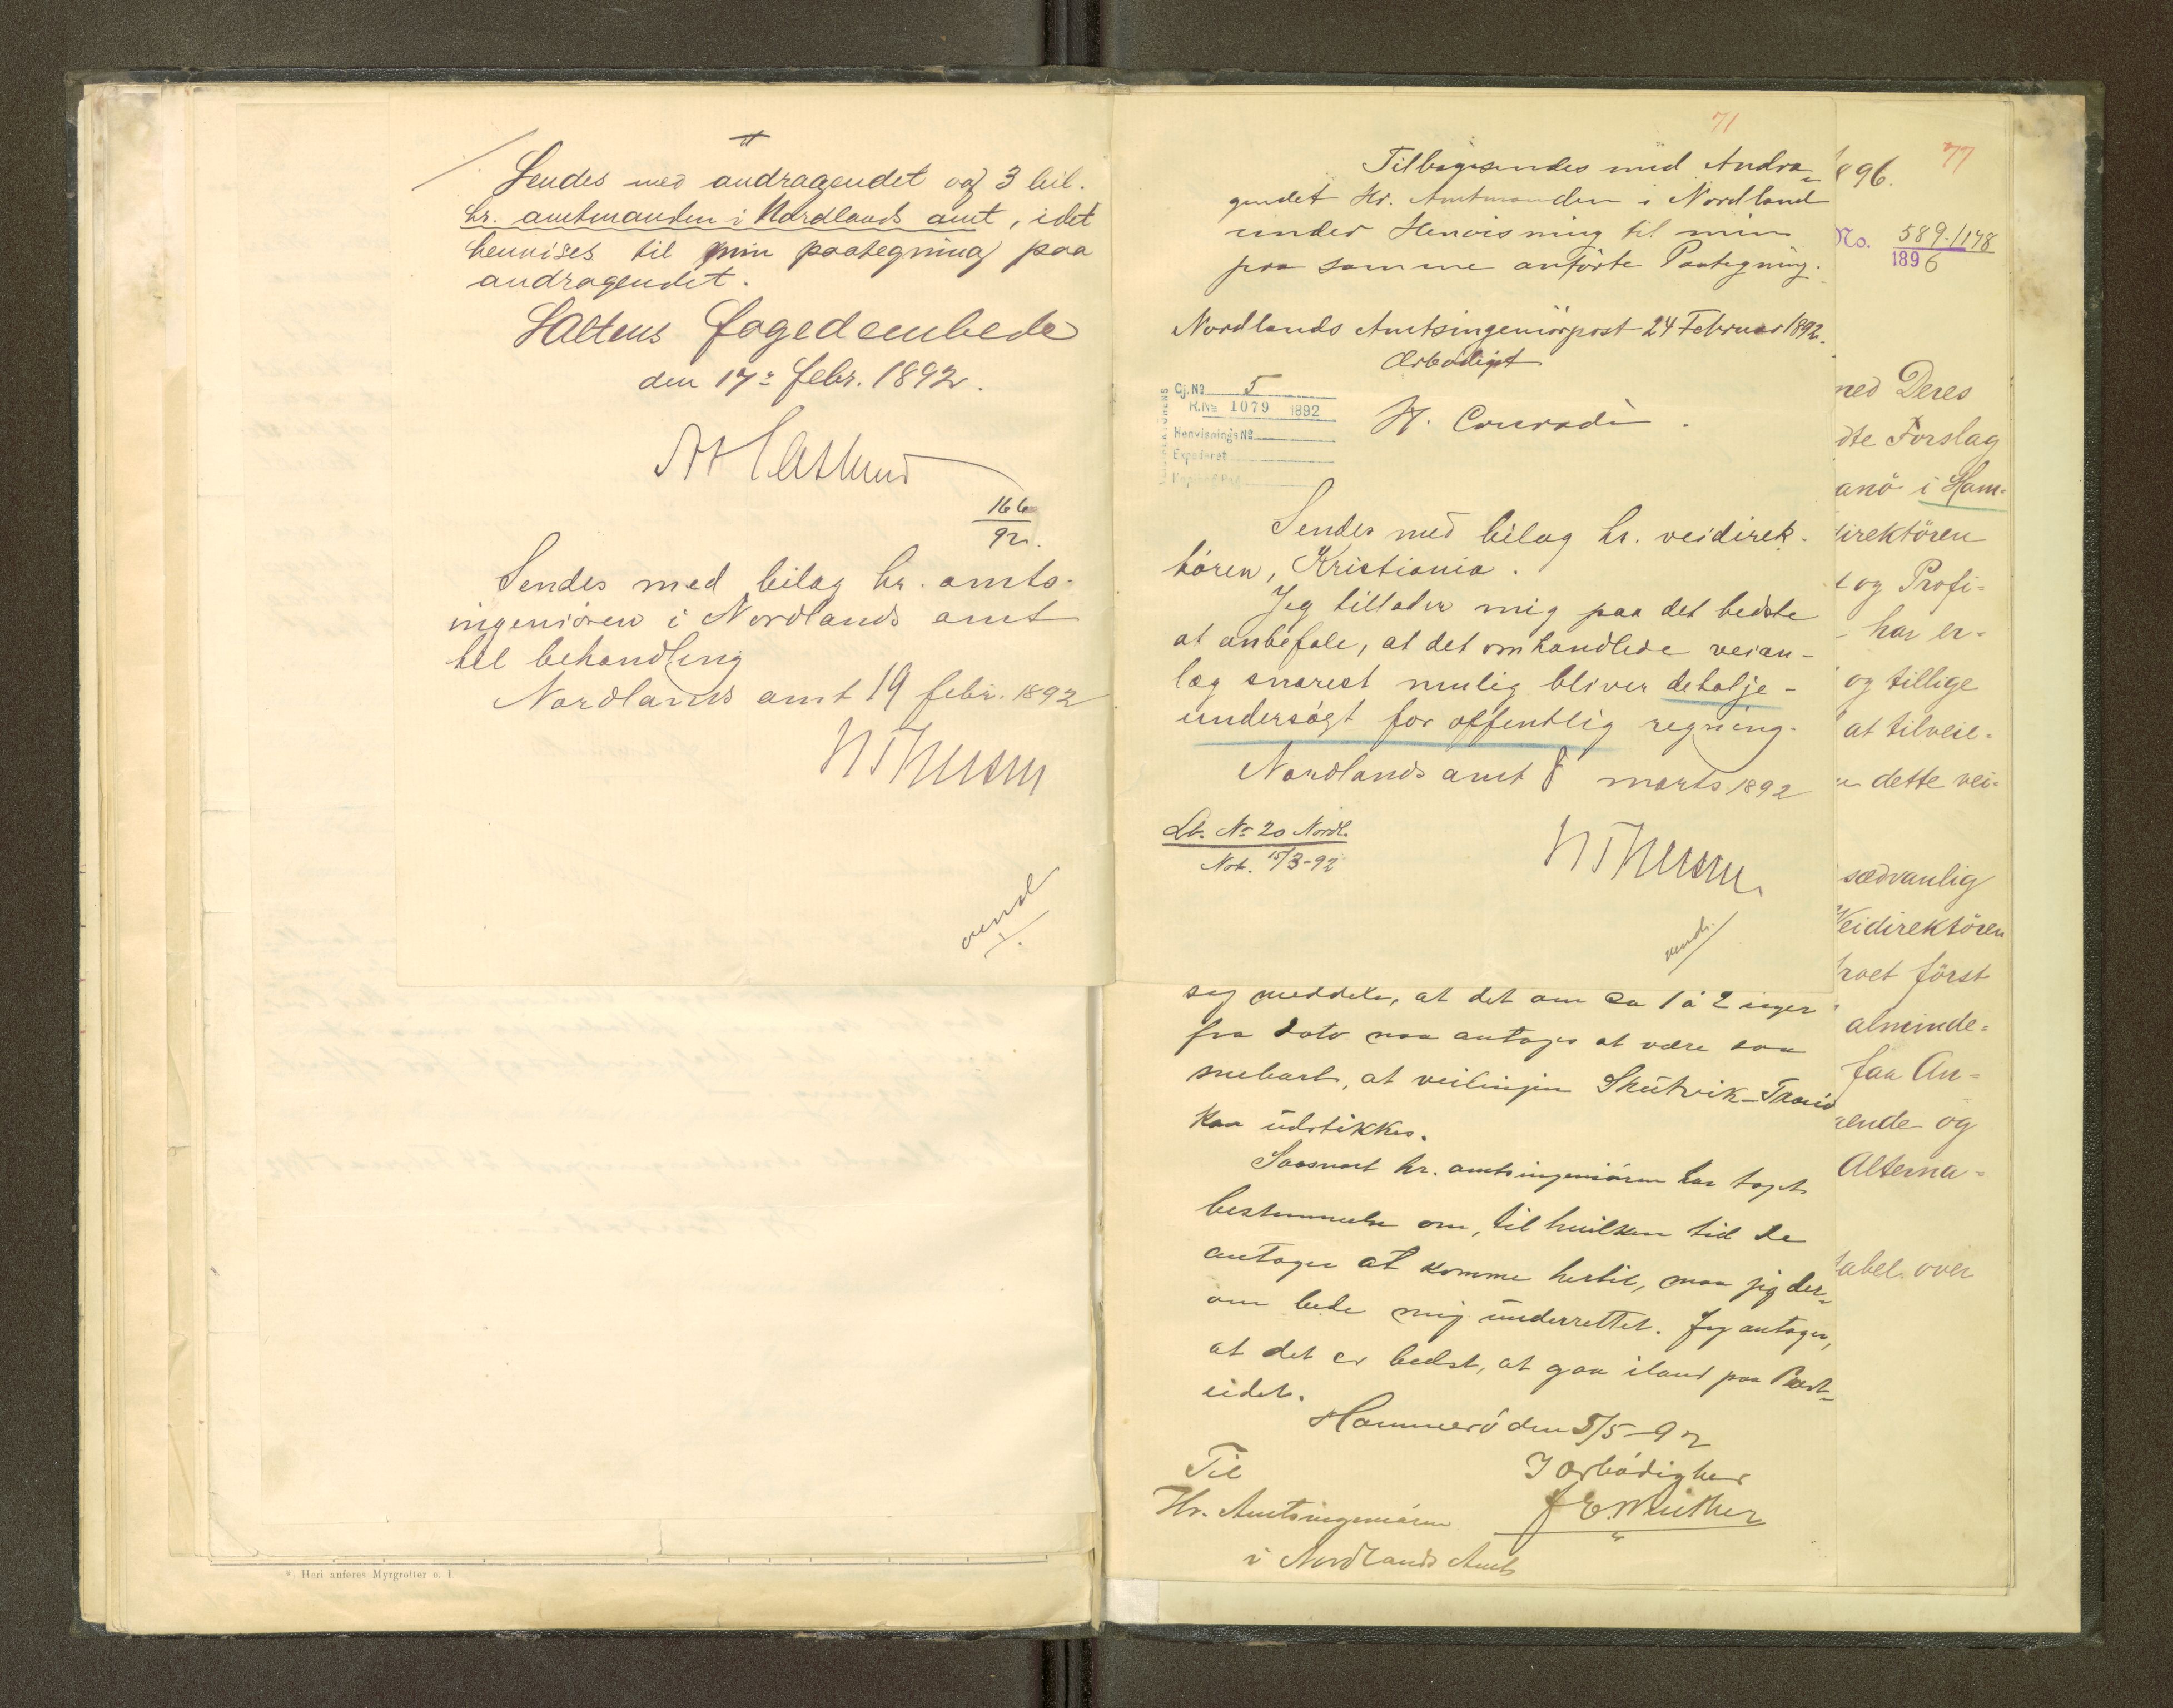 Sendes med andragendet og 3 bil.
hr. amtmanden i Nordlands amt, idet
henvises til min paategning paa
andragendet.
Saltens fogedembede
den 17 febr. 1892.
166
92.
Sendes med bilag hr. amts-
ingeniøren i Nordlands amt
til behandling
Nordlands amt 19 febr. 1892
vend!
* Heri anføres Myrgrøfter o. l
71
Tilbagesendes med Andra-
gendet Hr. Amtmanden i Nordland
under Henvisning til min
paa samme anförte Paategning.
Nordlands Amtsingeniörpost 24 Februar 1892.
Ærbødigst
H. Conradi.
Cj. No 5
R. No 1079 1892
Henvisnings No
Expederet
Sendes med bilag hr. veidirek-
tören, Kristiania.
Jeg tillader mig paa det bedste
at anbefale, at det omhandlede veian-
læg snarest mulig bliver detalje-
undersøgt for offentlig regning.
Nordlands amt 8 marts 1892
Lb. No 20 Nordl.
Not. 15/3-92
vend!
meddele, at det om ca 1 à 2 uger
fra dato maa antages at være saa
snebart, at veilinjen Skutvik-
kan udstikkes.
Saasnart hr. amtsingeniören har taget
bestemmelse om, til hvilken tid De
antager at komme hertil, maa jeg der-
om bede mig underrettet. Jeg antager,
at det er bedst, at gaa iland paa
eidet.
Hammerö den 5/5-92
Til
Ærbödighed
Hr. Amtsingeniören
i Nordlands Amt
77
896.
No. 589./178
1896
med Deres
dte Forslag
anö i Ham-
direktören
t og Profi-
har er-
og tillige
at tilveie-
dette vei-
sædvanlig
Veidirektören
först
alminde-
faa An-
ende og
Alterna-
tabel over